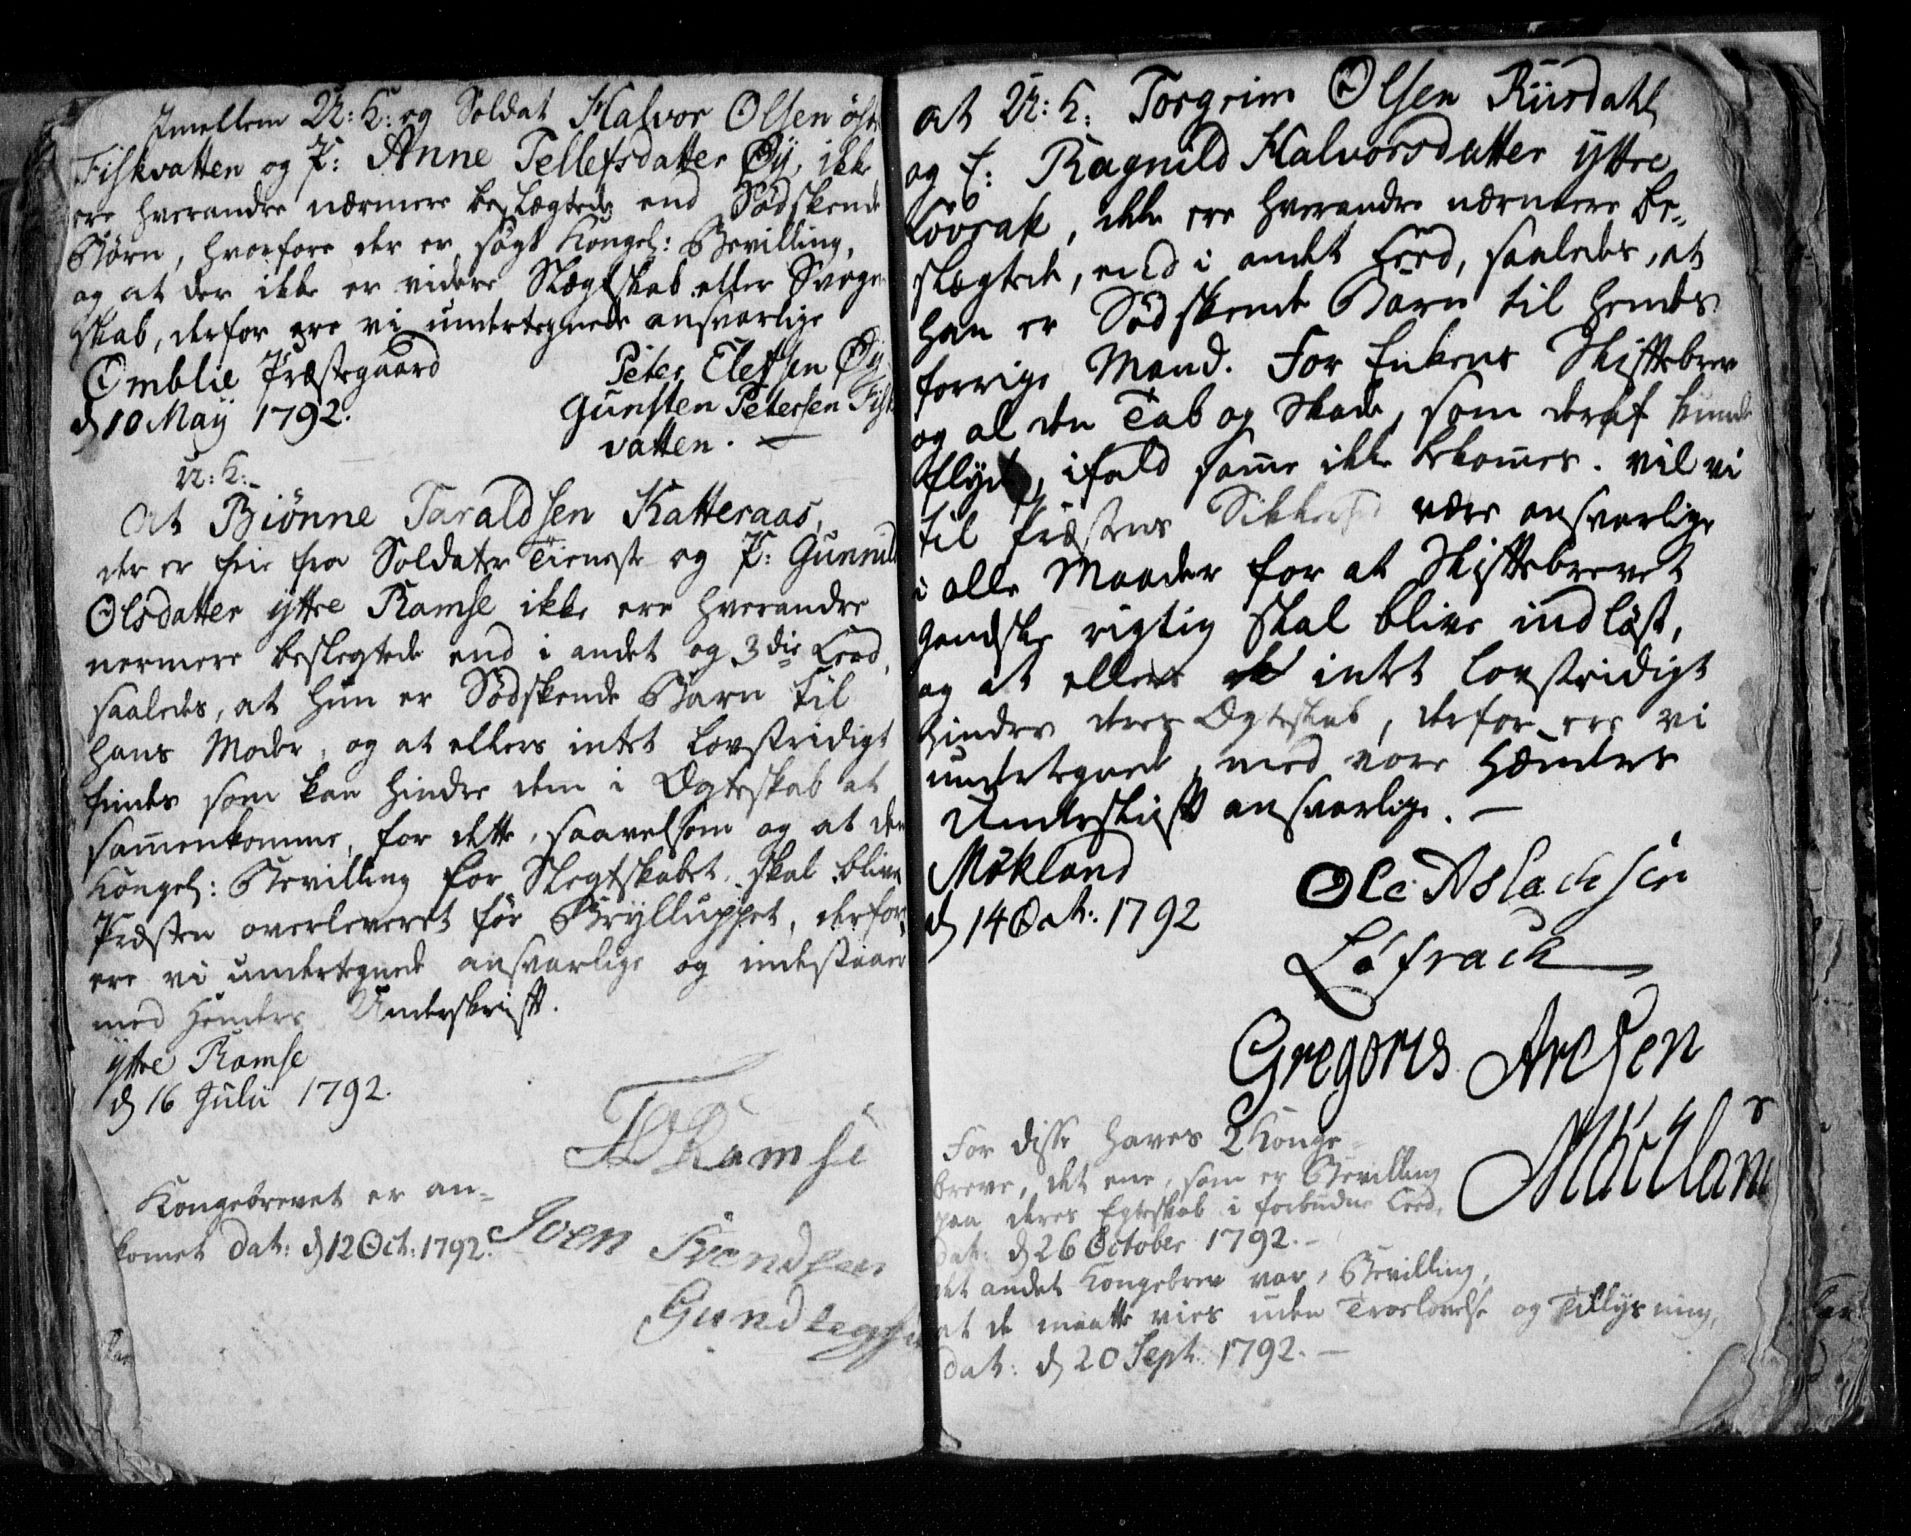 Imellem U: K: og Soldat Halvor Olsen øst
Fiskvatten og P: Anne Tellefsdatter Øy, ikke
ere hverandre nærmere beslægtede end Sødskende
Børn, hvorfore der er søgt Kongel: Bevilling,
og at der ikke er videre Slægtskab eller Svoger
skab, derfor ere vi undertegnede ansvarlige
Omblie Præstegaard
d 10 May 1792.
Peter Elefsen Øy
Gunsten Petersen Fisk
vatten. —
U: K:
At Biønne Taraldsen Katteraas,
der er frie fra Soldater Tieneste og P: Gunnild
Olsdatter ÿttre Ramse ikke ere hverandre
nermere beslegtede end i andet og 3die Leed,
saaledes, at hun er Sødskende Barn til
hans Moder, og at ellers intet lovstridigt
findes som kan hindre dem i Ægteskab at
sam̄enkomme, for dette, saavelsom og at den
Kongel: Bevilling for Slegtskabet skal blive
Præsten overleveret før Brylluppet, derfor
ere vi undertegnede ansvarlige og indestaaer
med Henders Underskrift.
ÿttre Ramse
d 16 Julii 1792.
Ramse
Kongebrevet er an-
komet dat: d 12 Oct: 1792.
Iven Svendsen
at U: K: Torgrim Olsen Riisdahl
og E: Ragnild Halvorsdatter ÿttre
Lovrak, ikke ere hverandre nærmere be-
slægtede, end i andet Leed, saaledes, at
han er Sødskende Barn til hendes
forrige Mand. For Enkens Skiftebrev
og al den Tab og Skade, som deraf kunde
flyde, ifald sam̄e ikke bekom̄es. vil vi
til Præstens Sikkerhed være ansvarlige
i alle Maader for at Skiftebrevet
gandske rigtig skal blive indløst,
og at ellers intet lovstridigt
hindrer deres Ægteskab, derfor ere vi
undertegnede, med vore Hænders
Underskrift ansvarlige. —
Møkland
d 14 Oct: 1792
Ole Aslachsen
Løfrack
Gregoris Aresen
For disse haves 2 Konge-
breve, det ene, som er Bevilling
paa deres Egteskab i forbudne Leed,
dat: d 26 October 1792. —
det andet Kongebrev var, Bevilling,
at de maatte vies uden Troelovelse og Tillysning,
dat: d 20 Sept: 1792. —